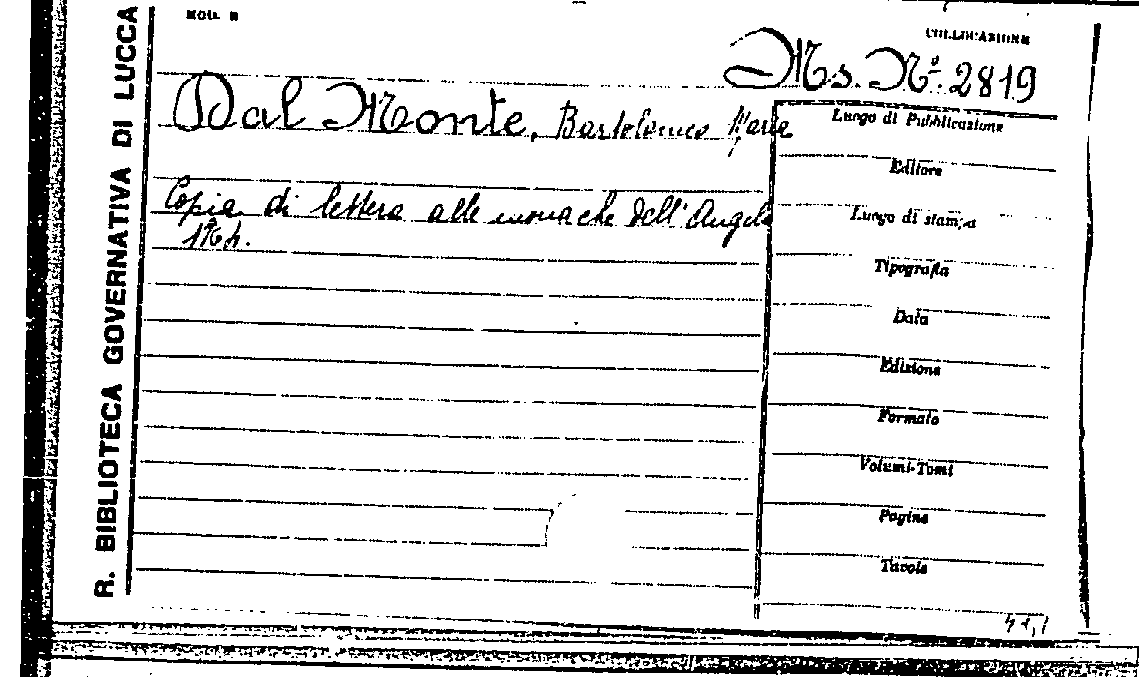 R. BIBLIOTECA GOVERNATIVA DI LUCCA
MOD. B
COLLOCAZIONE
Ms. Nº. 2819
Dal Monte, Bartolomeo Maria
Copia di lettera alle monache dell'Angelo
Luogo di Pubblicazione
Editore
Luogo di stampa
Tipografia
Data
Edizione
Formato
Volumi-Tomi
Pagine
Tavole